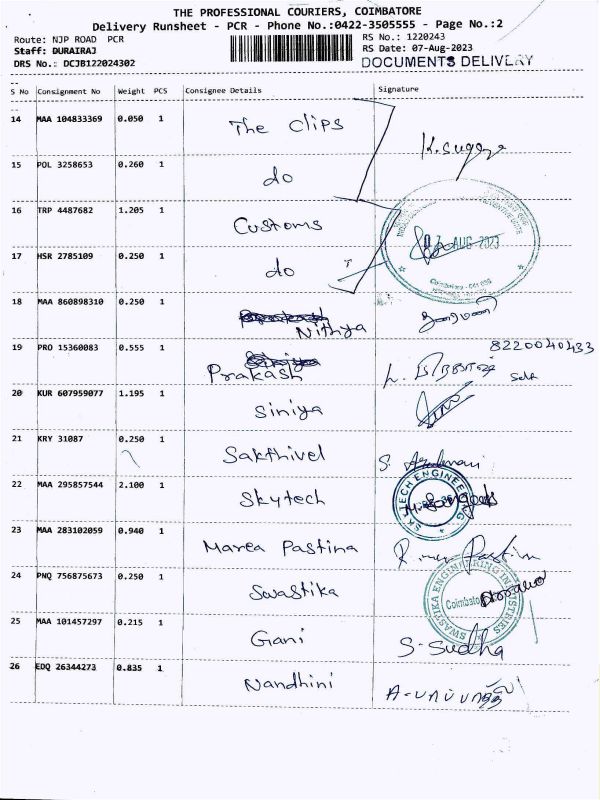 THE PROFESSIONAL COURIERS, COIMBATORE
Delivery Runsheet - PCR - Phone No.:0422-3505555 - Page No.:2
Route: NJP ROAD PCR
RS No.: 1220243
Staff: DURAIRAJ
RS Date: 07-Aug-2023
DRS No.: DCJB122024302
DOCUMENTS DELIVERY
S No Consignment No Weight PCS Consignee Details Signature
14 MAA 104833369 0.050 1 The Clips K. Sugaya
15 POL 3258653 0.260 1 do
16 TRP 4487682 1.205 1 Customs
AUG 2023
17 HSR 2785109 0.250 1 do
Coimbatore
18 MAA 860898310 0.250 1 Nithya
8220040433
19 PRO 15360083 0.555 1 Prakash
20 KUR 607959077 1.195 1 Siniya
21 KRY 31087 0.250 1 Sakthivel S.
22 MAA 295857544 2.100 1 Skytech SKYTECH ENGINEERING
23 MAA 283102059 0.940 1 Marea Pastina
24 PNQ 756875673 0.250 1 Swastika SWASTIKA ENGINEERING INDUSTRIES Coimbatore
25 MAA 101457297 0.215 1 Gani S-Sudha
26 EDQ 26344273 0.835 1 Nandhini